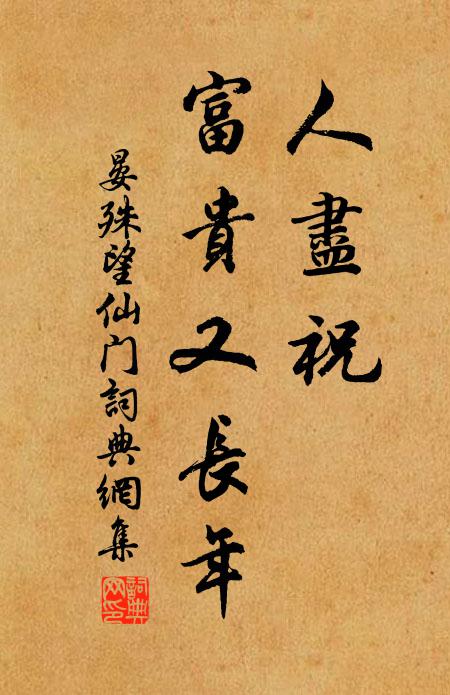 人盡祝
富貴又長年
晏殊望仙门詞典網集
詞典
网印